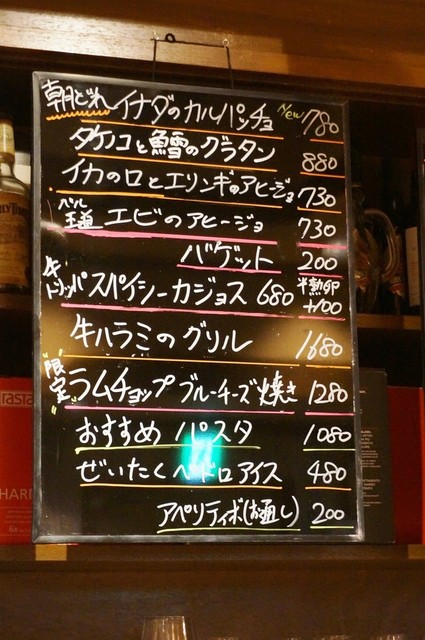 朝どれ イナダのカルパッチョ New 780
タケノコと鱈のグラタン 880
イカの口とエリンギのアヒージョ 730
バル王道 エビのアヒージョ 730
バゲット 200
牛トリッパスパイシーカジョス 680 半熟卵 +100
牛ハラミのグリル 1680
"限定" ラムチョップブルーチーズ焼き 1280
おすすめ パスタ 1080
ぜいたく ペドロアイス 480
アペリティボ(お通し) 200